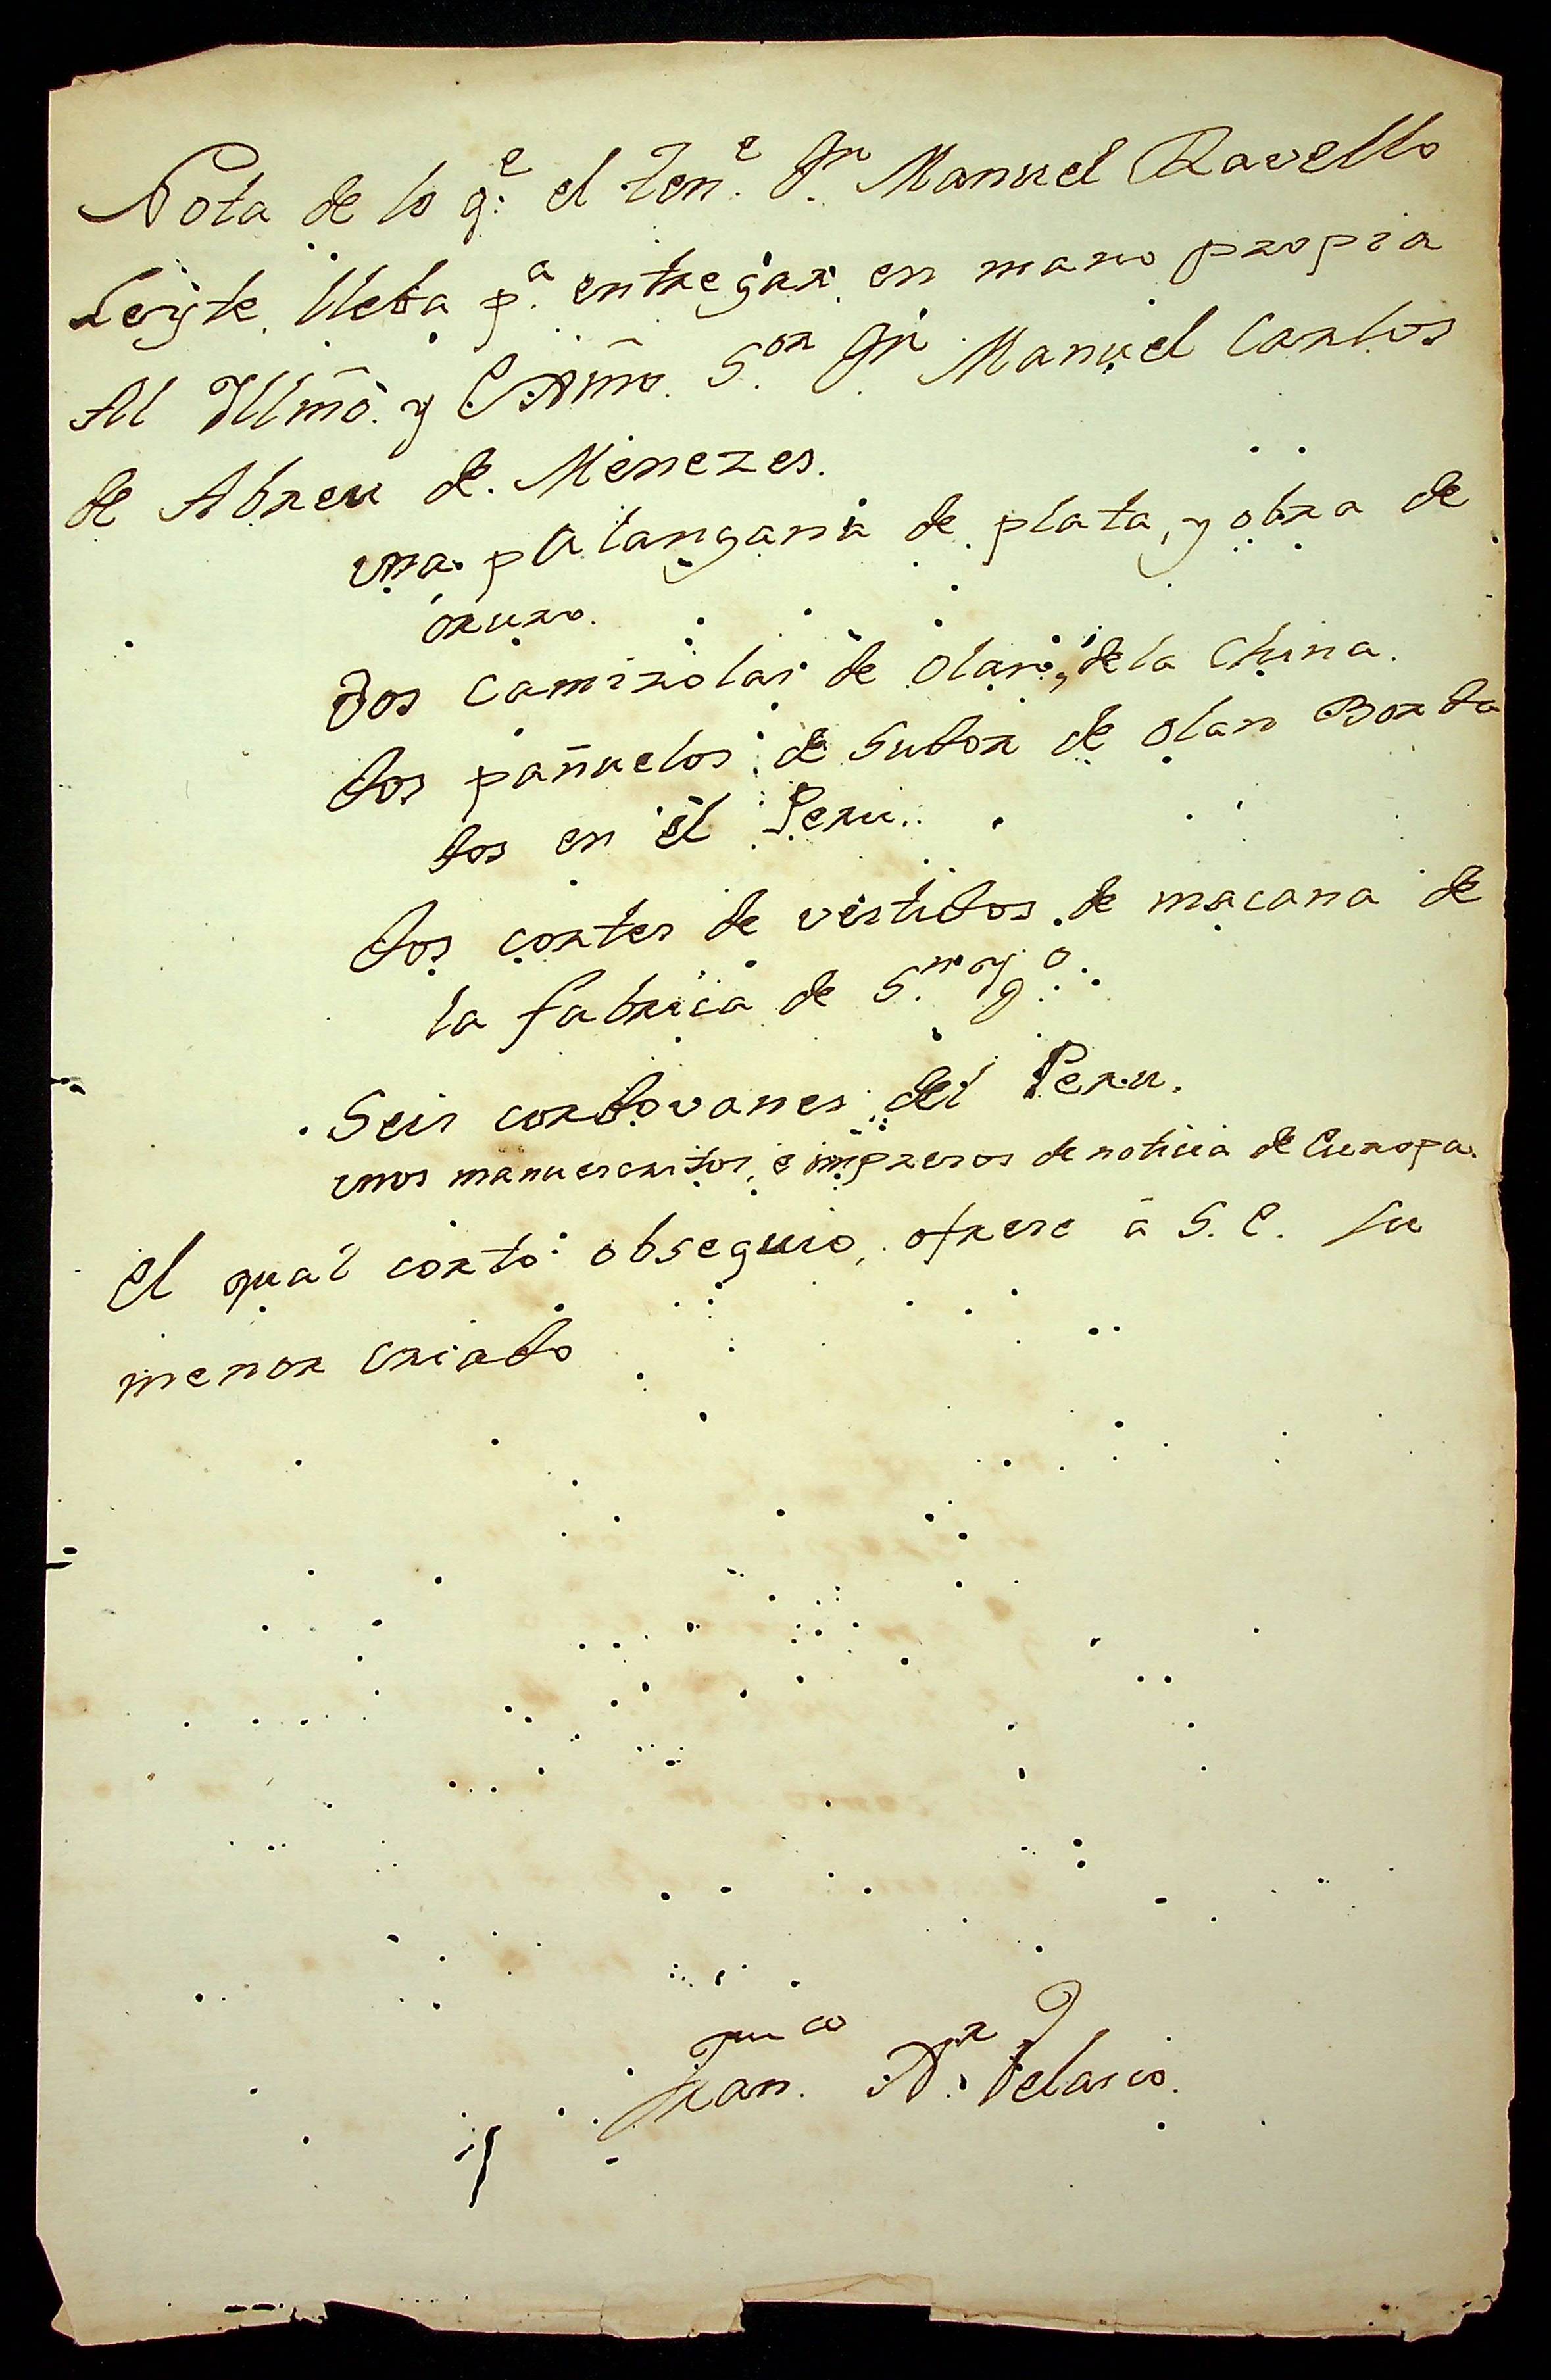 Nota de lo q.e el Ten.e D.n Manuel Ravello
Leyte lleba p.a entregar en mano propia
Al Illmô. y Exmô. S.or D.n Manuel Carlos
de Abreu de Menezes.
una palangana de plata, y obra de
oruro.
Dos Camizolas de olan, de la China.
dos pañuelos de Sudor de olan Borda
dos en el Peru.
dos cortes de vestidos de macana de
la fabrica de S.n Ig.o
Seis cordovanes del Peru.
unos manuescritos, e impresos de noticia de Europa.
El qual corto obsequio, ofrese à S. E. su
menor criado
Fran.co X.r Velasco.